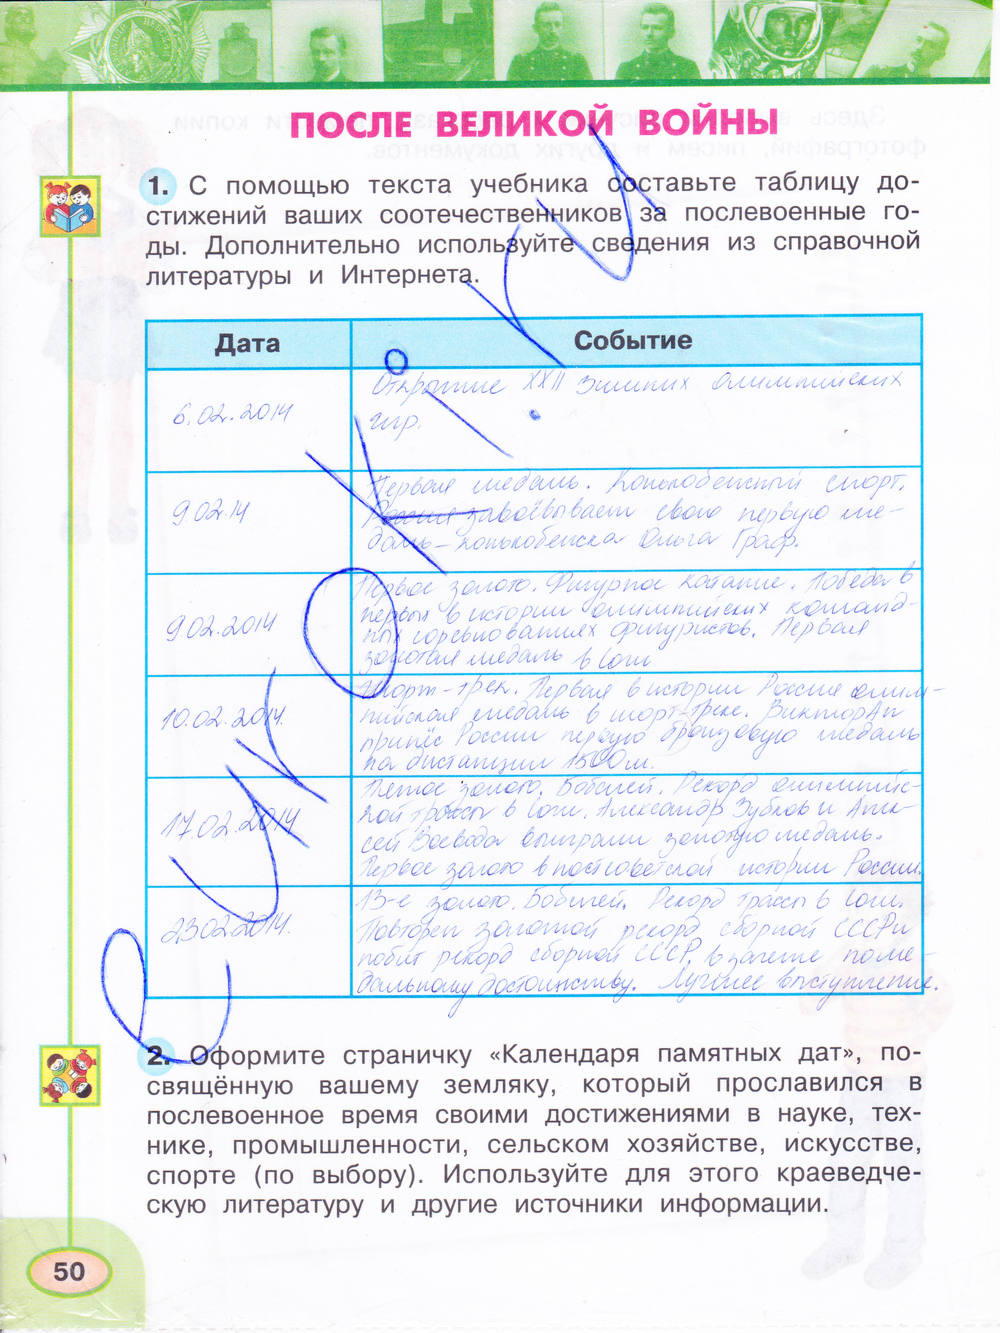 ПОСЛЕ ВЕЛИКОЙ ВОЙНЫ
1. С помощью текста учебника составьте таблицу до-
стижений ваших соотечественников за послевоенные го-
ды. Дополнительно используйте сведения из справочной
литературы и Интернета.
Дата Событие
6.02.2014
Открытие XXII Зимних олимпийских
игр.
9.02.14
Первая медаль. Конькобежный спорт.
Россия завоёвывает свою первую ме-
даль – конькобежка Ольга Граф.
9.02.2014
Первое золото. Фигурное катание. Победа в
первых в истории олимпийских команд-
ных соревнованиях фигуристов. Первая
золотая медаль в Сочи
10.02.2014.
Шорт-трек. Первая в истории России олим-
пийская медаль в шорт-треке. Виктор Ан
принёс России первую бронзовую медаль
на дистанции 1500м.
17.02.2014
Пятое золото. Бобслей. Рекорд олимпийс-
кой трассы в Сочи. Александр Зубков и Алек-
сей Воевода выиграли золотую медаль.
Первое золото в постсоветской истории России.
23.02.2014.
13-е золото. Бобслей. Рекорд трассы в Сочи.
Повторен золотой рекорд сборной СССР и
побит рекорд сборной СССР, в зачете по ме-
дальному достоинству. Лучшее выступление.
e-uroki.ru
2. Оформите страничку «Календаря памятных дат», по-
свящённую вашему земляку, который прославился в
послевоенное время своими достижениями в науке, тех-
нике, промышленности, сельском хозяйстве, искусстве,
спорте (по выбору). Используйте для этого краеведче-
скую литературу и другие источники информации.
50